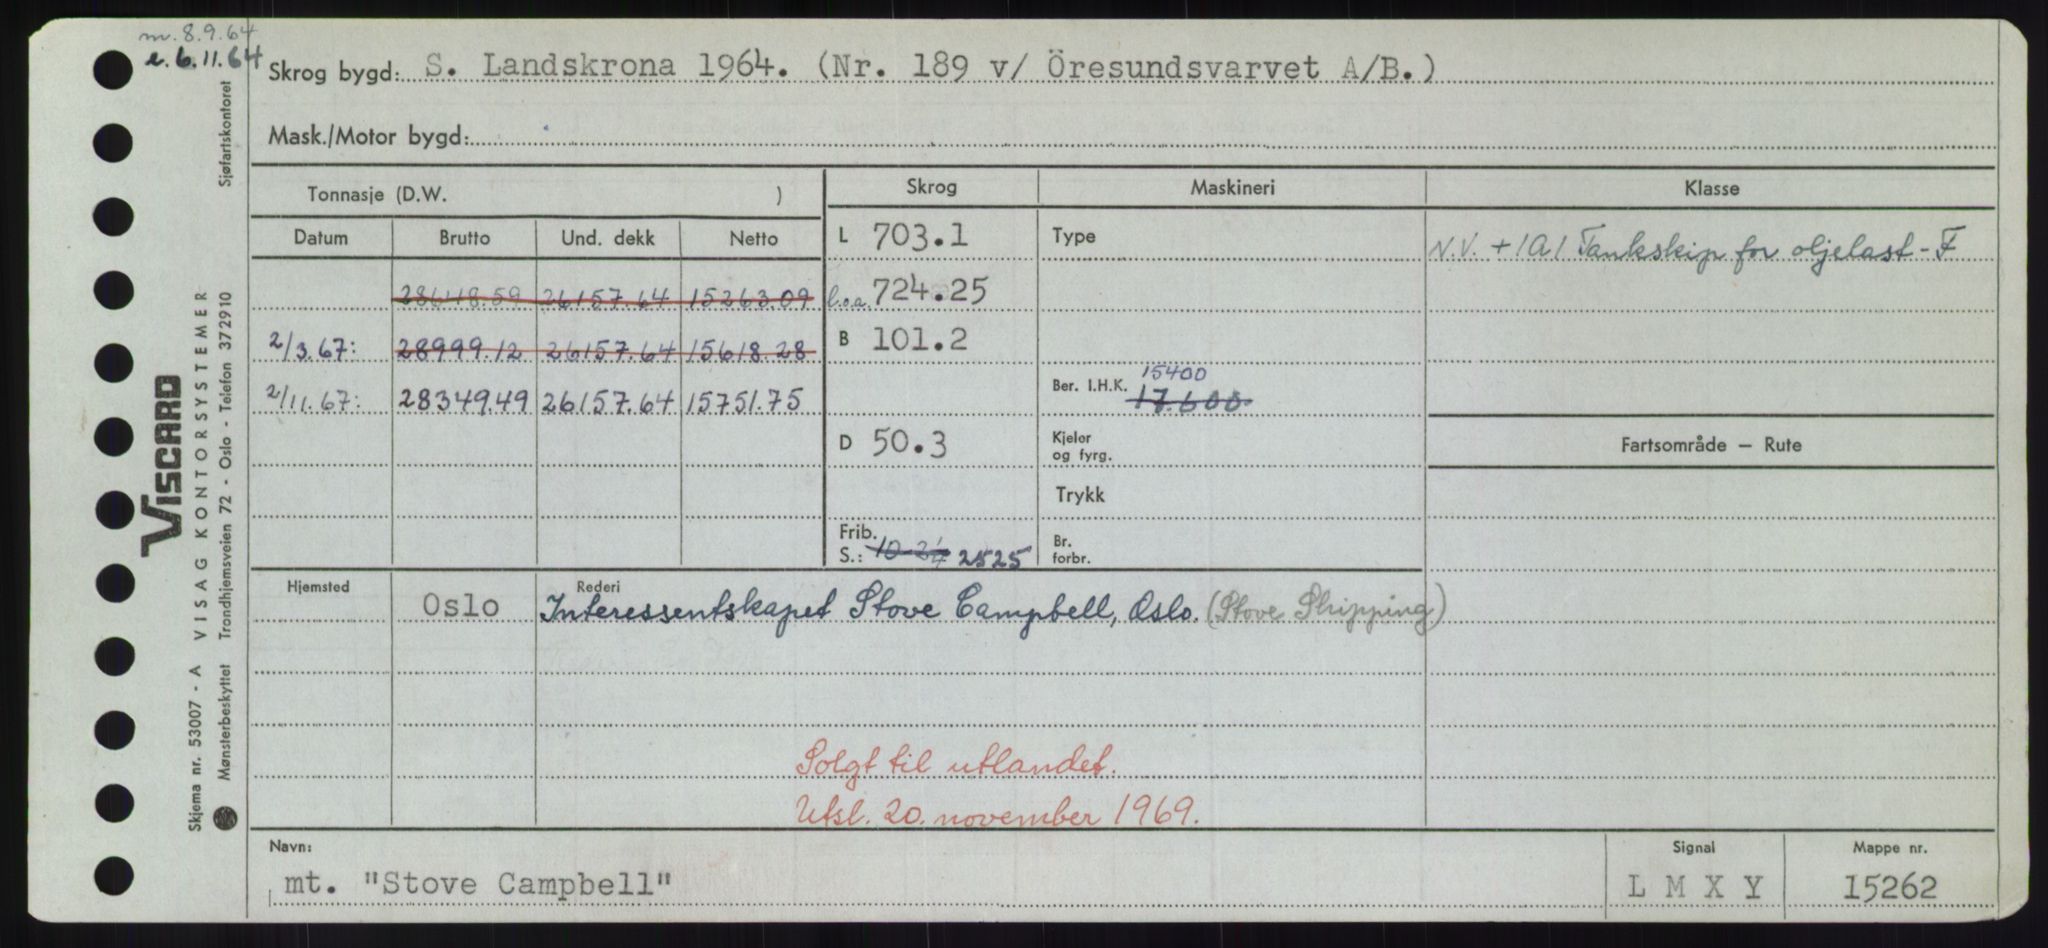 m. 8.9.64
e. 6.11.64
Skrog bygd: S. Landskrona 1964. (Nr. 189 v/ Öresundsvarvet A/B.)
Mask./Motor bygd:
Tonnasje (D.W. ) Skrog Maskineri Klasse
Datum Brutto Und. dekk Netto L 703.1 Type N.V. + 1A1 Tankskip for oljelast - F
28648.59 26157.64 15263.09 l.o.a. 724.25
2/3.67: 28999.12 26157.64 15618.28 B 101.2
Ber. I.H.K. 15400
2/11.67: 28349.49 26157.64 15751.75 17.600
D 50.3 Kjeler og fyrg. Fartsområde — Rute
Trykk
Frib. S.: 2525 Br. forbr.
Hjemsted Rederi
Oslo Interessentskapet Stove Campbell, Oslo. (Stove Shipping)
Solgt til utlandet.
Utsl. 20. november 1969.
Navn: Signal Mappe nr.
mt. "Stove Campbell" L M X Y 15262
Skjema nr. 53007 - A VISAG KONTORSYSTEMER
VISCARD
Mønsterbeskyttet Trondhjemsveien 72 - Oslo - Telefon 372910 Sjøfartskontoret